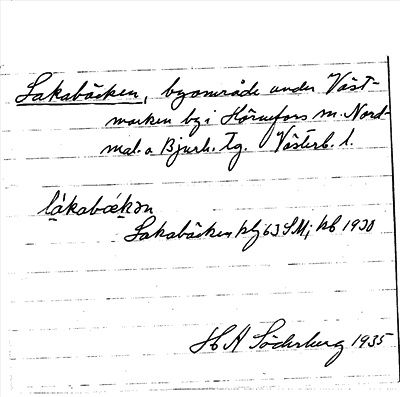 Lakabäcken, byområde under Väst-
marken by i Hörnefors m. Nord-
mal. o Bjurh. tg. Västerb. l.
lákabækən
Lakabäcken blg 63 SM; kb 1930
H A Söderberg 1935